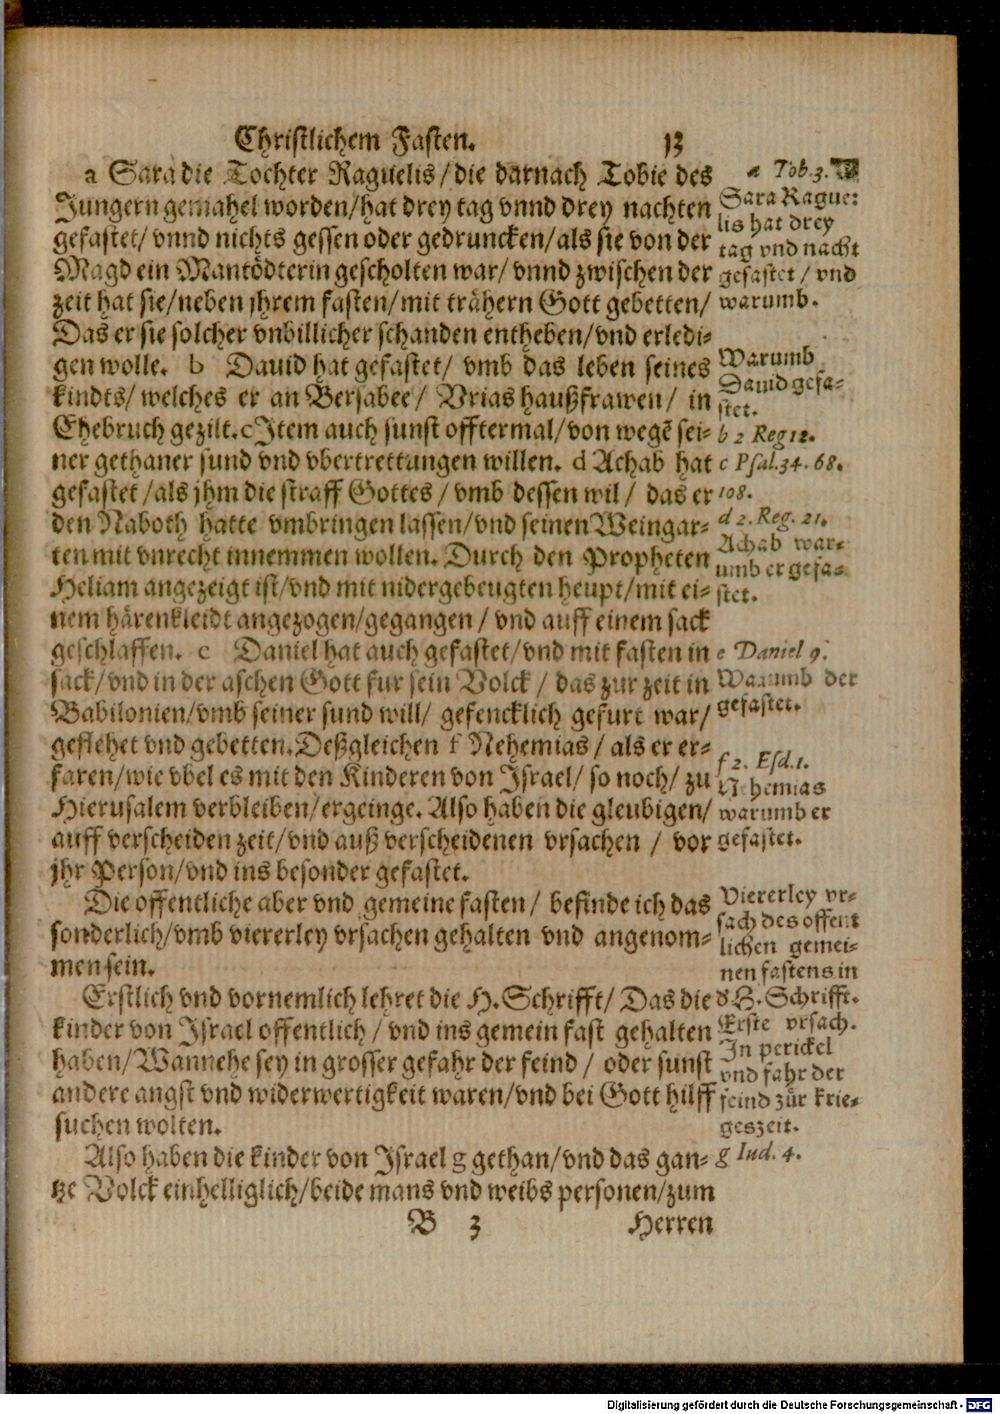 Christlichem Fasten. 13
a Sara die Tochter Raguelis/die darnach Tobie des
Jungern gemahel worden/hat drey tag vnnd drey nachten
gefastet/ vnnd nichts gessen oder gedruncken/als sie von der
Magd ein Mantödterin gescholten war/ vnnd zwischen der
zeit hat sie/neben jhrem fasten/mit trähern Gott gebetten/
Das er sie solcher vnbillicher schanden entheben/vnd erledi-
gen wolle. b Dauid hat gefastet/ vmb das leben seines
kindts/ welches er an Bersabee/ Vrias haußfrawen/ in
Ehebruch gezilt. c Item auch sunst offtermal/von wegē sei-
ner gethaner sund vnd vbertrettungen willen. d Achab hat
gefastet/als jhm die straff Gottes/ vmb dessen wil/ das er
den Naboth hatte vmbringen lassen/vnd seinen Weingar-
ten mit vnrecht innemmen wollen. Durch den Propheten
Heliam angezeigt ist/vnd mit nidergebeugten heupt/mit ei-
nem härenkleidt angezogen/gegangen/ vnd auff einem sack
geschlaffen. e Daniel hat auch gefastet/vnd mit fasten in
sack/vnd in der aschen Gott fur sein Volck/ das zur zeit in
Babilonien/vmb seiner sund will/ gefencklich gefurt war/
geflehet vnd gebetten. Deßgleichen f Nehemias/ als er er-
faren/wie vbel es mit den Kinderen von Israel/ so noch/ zu
Hierusalem verbleiben/ergeinge. Also haben die gleubigen/
auff verscheiden zeit/vnd auß verscheidenen vrsachen/ vor
jhr Person/vnd ins besonder gefastet.
Die offentliche aber vnd gemeine fasten/ befinde ich das
sonderlich/vmb viererley vrsachen gehalten vnd angenom-
men sein.
Erstlich vnd vornemlich lehret die H. Schrifft/ Das die
kinder von Israel offentlich/ vnd ins gemein fast gehalten
haben/Wannehe sey in grosser gefahr der feind/ oder sunst
andere angst vnd widerwertigkeit waren/vnd bei Gott hilff
suchen wolten.
Also haben die kinder von Israel g gethan/vnd das gan-
tze Volck einhelliglich/beide mans vnd weibs personen/zum
B 3 Herren
a Tob. 3.
Sara Rague-
lis hat drey
tag vnd nacht
gefastet/ vnd
warumb.
Warumb
Dauid gefa-
stet.
b 2 Reg 12.
c Psal. 34. 68.
108.
d 2. Reg. 21.
Achab war-
umb er gefa-
stet.
e Daniel 9.
Warumb der
gefastet.
f 2. Esd. 1.
Nehemias
warumb er
gefastet.
Viererley vr-
sach des offent
lichen gemei-
nen fastens in
d' H. Schrifft.
Erste vrsach.
In perickel
vnd fahr der
feind zůr krie-
geszeit.
g Iud. 4.
Digitalisierung gefördert durch die Deutsche Forschungsgemeinschaft - DFG